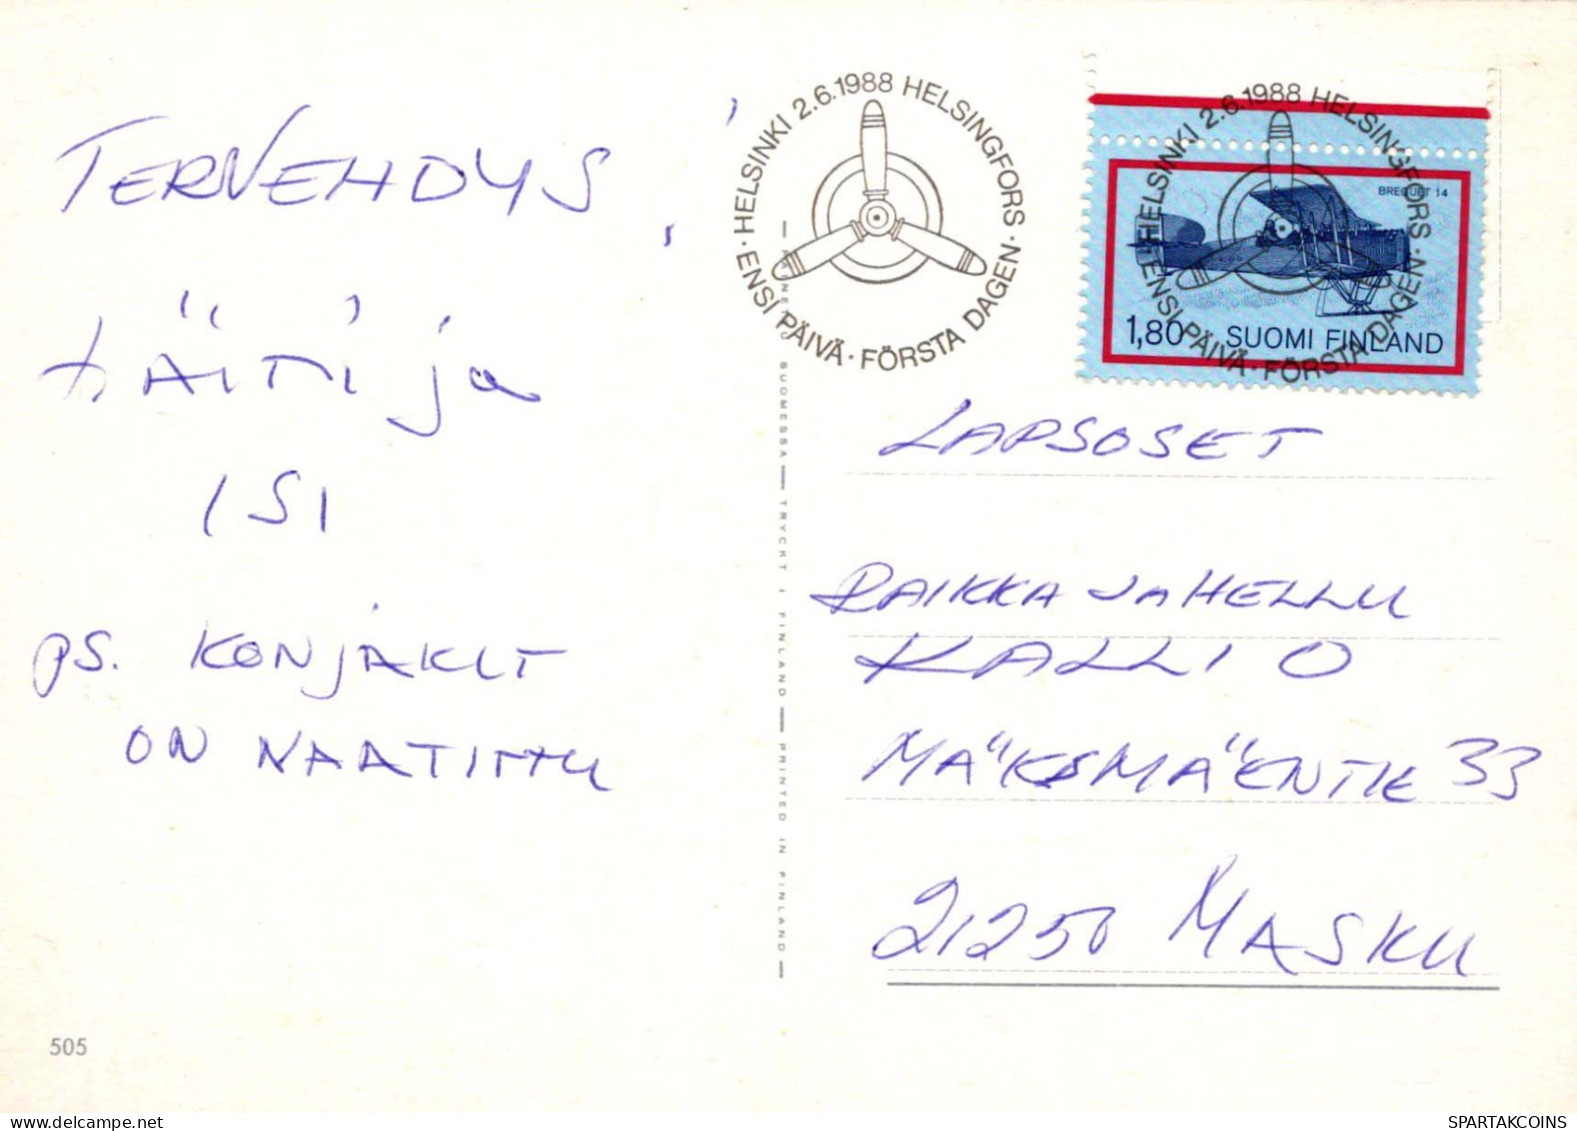 TERVEHDYS,
ÄITI ja
ISI
PS. KONJAKIT
ON NAATITTU
HELSINKI 2.6.1988 HELSINGFORS
· ENSI PÄIVÄ · FÖRSTA DAGEN ·
HELSINKI 2.6.1988 HELSINGFORS
· ENSI PÄIVÄ · FÖRSTA DAGEN ·
BREGUET 14
1,80 SUOMI FINLAND
SUOMESSA — TRYCKT I FINLAND — PRINTED IN FINLAND —
LAPSOSET
RAIKKA JA HELLU
KALLIO
MÄKSMÄENTIE 33
21250 MASKU
505
SPARTAKCOINS